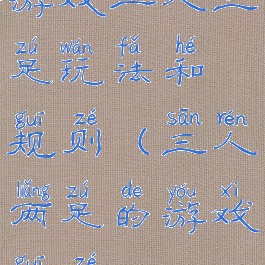 游戏三人三
zú wán fǎ hé
足玩法和
guī zé sān rén
规则（三人
liǎng zú de yóu xì
两足的游戏
guī zé